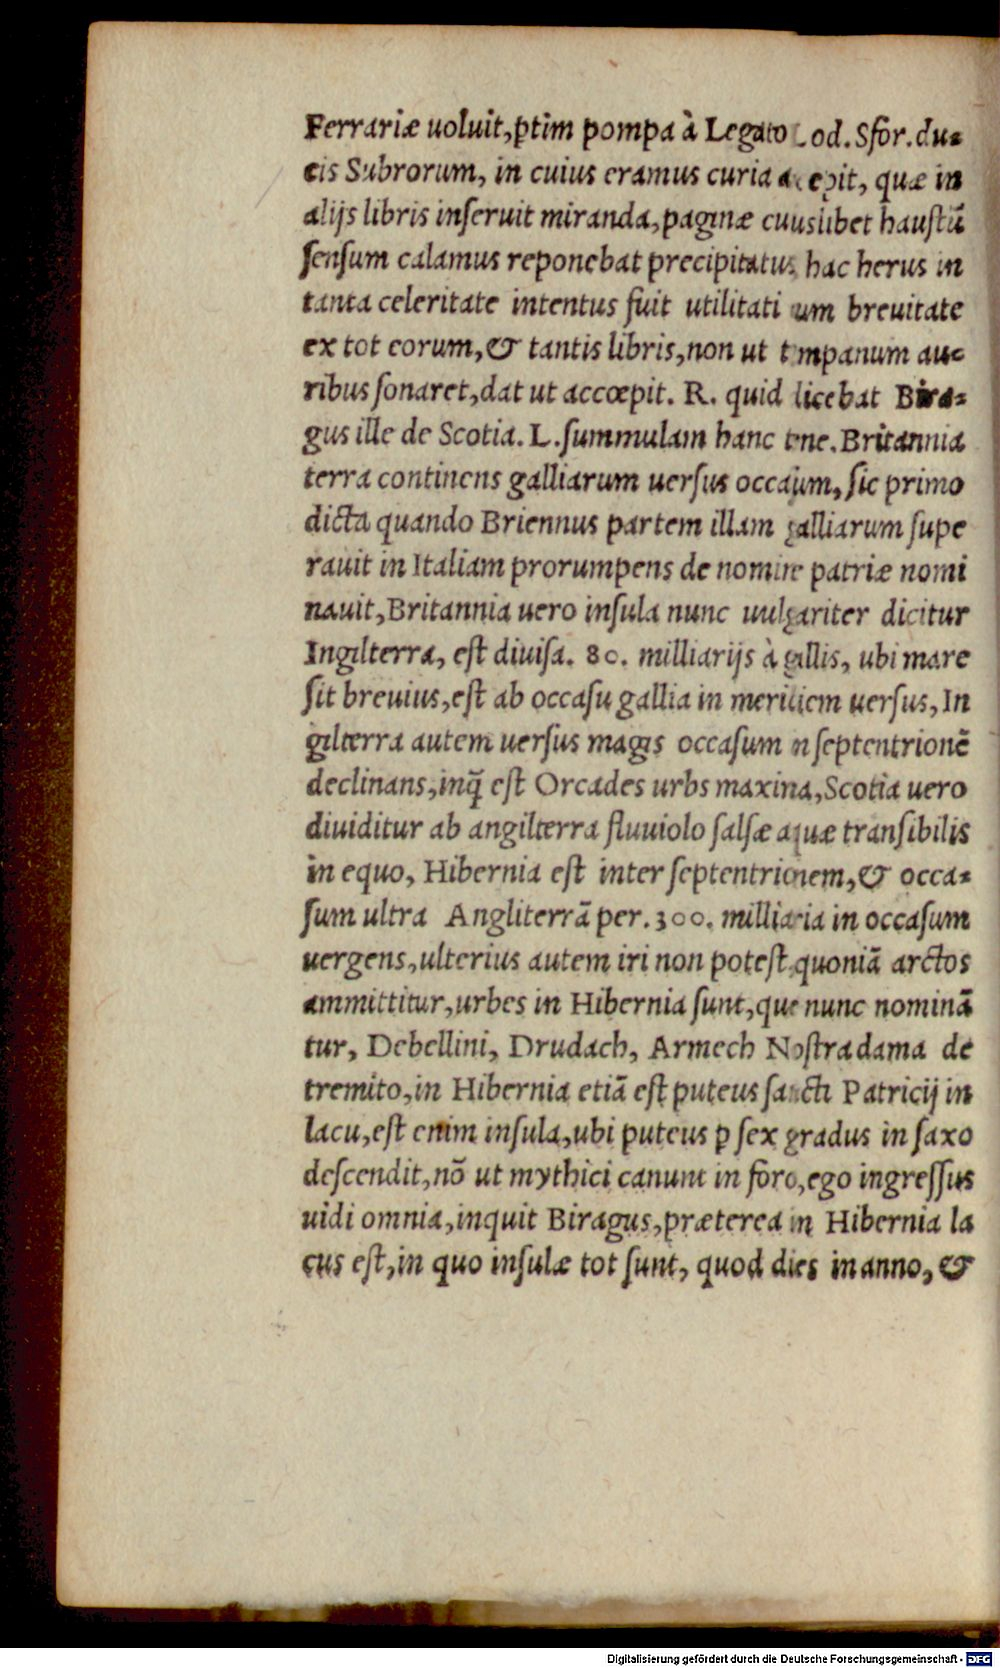 Ferrariæ uoluit, ꝑtim pompa à Legato Lod. Sfor. du-
cis Subrorum, in cuius eramus curia accepit, quæ in
alijs libris inseruit miranda, paginæ cuuslibet haustū
sensum calamus reponebat precipitatus hac herus in
tanta celeritate intentus fuit utilitati um breuitate
ex tot eorum, & tantis libris, non ut tmpanum au-
ribus sonaret, dat ut accœpit. R. quid licebat Bira-
gus ille de Scotia. L. summulam hanc tene. Britannia
terra continens galliarum uersus occasum, sic primo
dicta quando Briennus partem illam galliarum supe
rauit in Italiam prorumpens de nomine patriæ nomi
nauit, Britannia uero insula nunc uulgariter dicitur
Ingilterra, est diuisa. 80. milliarijs à gallis, ubi mare
sit breuius, est ab occasu gallia in meridiem uersus, In
gilterra autem uersus magis occasum in septentrionē
declinans, inq̃ est Orcades urbs maxina, Scotia uero
diuiditur ab angilterra fluuiolo salsæ aquæ transibilis
in equo, Hibernia est inter septentrionem, & occa-
sum ultra Angliterrā per. 300. milliaria in occasum
uergens, ulterius autem iri non potest, quoniā arctos
ammittitur, urbes in Hibernia sunt, que nunc nominā
tur, Debellini, Drudach, Armech Nostradama de
tremito, in Hibernia etiā est puteus sancti Patricij in
lacu, est enim insula, ubi puteus ꝑ sex gradus in saxo
descendit, nō ut mythici canunt in foro, ego ingressus
uidi omnia, inquit Biragus, præterea in Hibernia la
cus est, in quo insulæ tot sunt, quod dies in anno, &
Digitalisierung gefördert durch die Deutsche Forschungsgemeinschaft - DFG